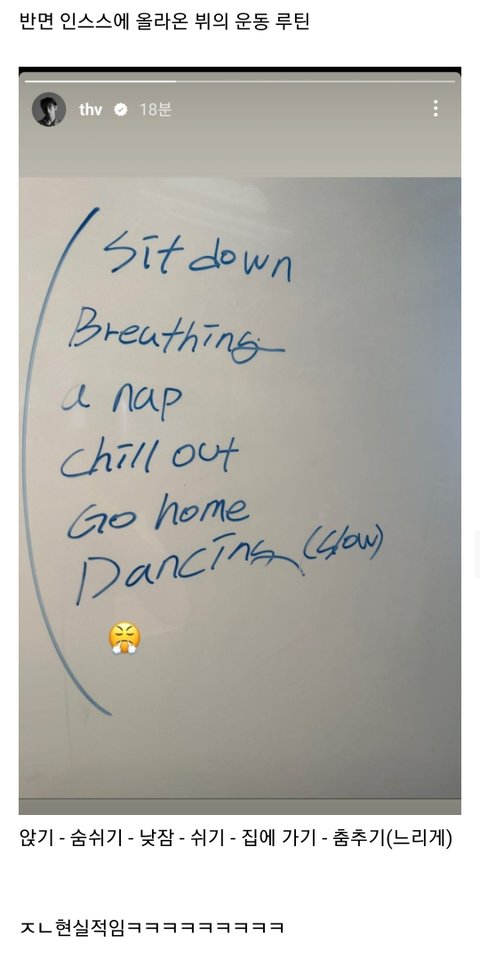 반면 인스스에 올라온 뷔의 운동 루틴
thv 18분
Sit down
Breathing
a nap
Chill out
Go home
Dancing (slow)
앉기 - 숨쉬기 - 낮잠 - 쉬기 - 집에 가기 - 춤추기(느리게)
ㅈㄴ현실적임ㅋㅋㅋㅋㅋㅋㅋㅋㅋ